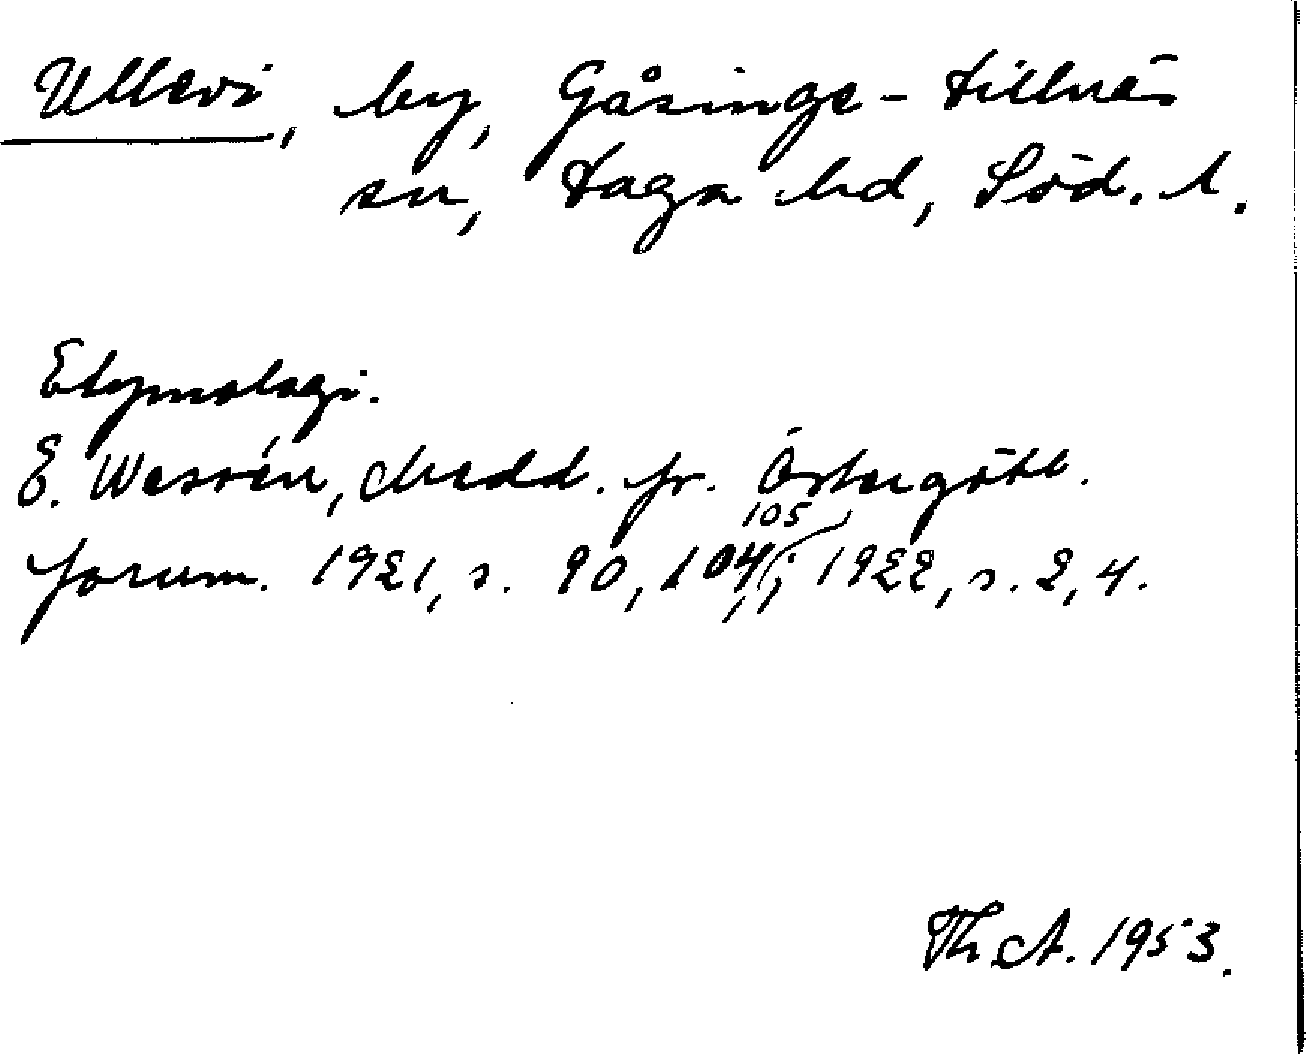 Ullevi, by, Gåsinge-Dillnäs
sn, Daga hd, Söd. l.
Etymologi.
E. Wessén, Medd. fr. Östergötl.
fornm. 1921, s. 90, 104, 105; 1922, s. 2, 4.
Th. A. 1953.